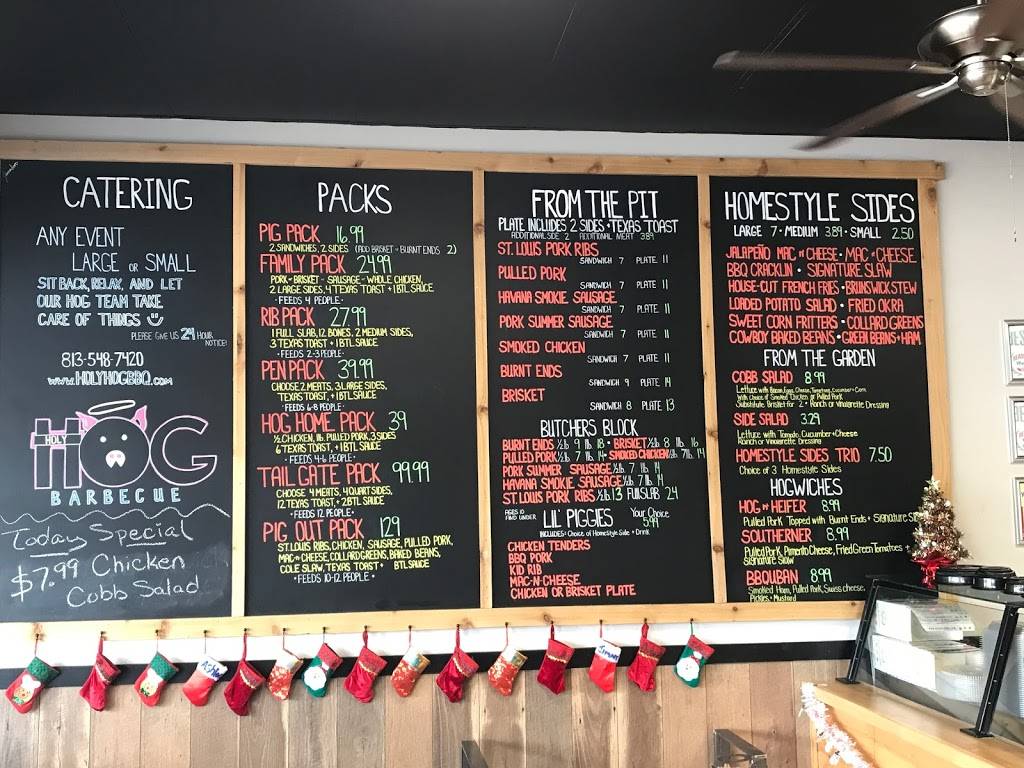 CATERING
ANY EVENT
LARGE OR SMALL
SIT BACK, RELAX, AND LET
OUR HOG TEAM TAKE
CARE OF THINGS
PLEASE GIVE US 24 HOUR
NOTICE!
813-548-7420
WWW.HOLYHOGBBQ.COM
HOLY
HOG
BARBECUE
Today Special
$7.99 Chicken
Cobb Salad
PACKS
PIG PACK 16.99
2 SANDWICHES, 2 SIDES (ADD BRISKET OR BURNT ENDS 2)
FAMILY PACK 24.99
PORK OR BRISKET - SAUSAGE - WHOLE CHICKEN,
2 LARGE SIDES, 4 TEXAS TOAST + 1 BTL SAUCE
• FEEDS 4 PEOPLE •
RIB PACK 27.99
1 FULL SLAB, 12 BONES, 2 MEDIUM SIDES,
3 TEXAS TOAST + 1 BTL SAUCE
• FEEDS 2-3 PEOPLE •
PEN PACK 39.99
CHOOSE 2 MEATS, 3 LARGE SIDES,
TEXAS TOAST, + 1 BTL SAUCE
• FEEDS 6-8 PEOPLE •
HOG HOME PACK 39
½ CHICKEN, 1 lb. PULLED PORK, 3 SIDES
6 TEXAS TOAST, + 1 BTL SAUCE
• FEEDS 4-6 PEOPLE •
TAIL GATE PACK 99.99
CHOOSE 4 MEATS, 4 QUART SIDES,
12 TEXAS TOAST, + 2 BTL SAUCE
• FEEDS 12 PEOPLE •
PIG OUT PACK 129
ST. LOUIS RIBS, CHICKEN, SAUSAGE, PULLED PORK,
MAC N CHEESE, COLLARD GREENS, BAKED BEANS,
COLE SLAW, TEXAS TOAST + BTL SAUCE
• FEEDS 10-12 PEOPLE •
FROM THE PIT
PLATE INCLUDES 2 SIDES • TEXAS TOAST
ADDITIONAL SIDE 2 ADDITIONAL MEAT 3.89
ST. LOUIS PORK RIBS
SANDWICH 7 PLATE 11
PULLED PORK
SANDWICH 7 PLATE 11
HAVANA SMOKIE SAUSAGE
SANDWICH 7 PLATE 11
PORK SUMMER SAUSAGE
SANDWICH 7 PLATE 11
SMOKED CHICKEN
SANDWICH 7 PLATE 11
BURNT ENDS
SANDWICH 9 PLATE 14
BRISKET
SANDWICH 8 PLATE 13
BUTCHERS BLOCK
BURNT ENDS ½ lb. 9 1 lb. 18 • BRISKET ½ lb. 8 1 lb. 16
PULLED PORK ½ lb. 7 1 lb. 14 • SMOKED CHICKEN ½ lb. 7 1 lb. 14
PORK SUMMER SAUSAGE ½ lb. 7 1 lb. 14
HAVANA SMOKIE SAUSAGE ½ lb. 7 1 lb. 14
ST. LOUIS PORK RIBS ½ lb. 13 FULL SLAB 24
AGES 10 AND UNDER LIL' PIGGIES Your Choice 5.99
INCLUDES: Choice of Homestyle Side + Drink
CHICKEN TENDERS
BBQ PORK
KID RIB
MAC-N-CHEESE
CHICKEN OR BRISKET PLATE
HOMESTYLE SIDES
LARGE 7 • MEDIUM 3.89 • SMALL 2.50
JALAPEÑO MAC N CHEESE • MAC N CHEESE
BBQ CRACKLIN • SIGNATURE SLAW
HOUSE-CUT FRENCH FRIES • BRUNSWICK STEW
LOADED POTATO SALAD • FRIED OKRA
SWEET CORN FRITTERS • COLLARD GREENS
COWBOY BAKED BEANS • GREEN BEANS + HAM
FROM THE GARDEN
COBB SALAD 8.99
Lettuce with Bacon, Eggs, Cheese, Tomatoes, Cucumber + Corn
With Choice of Smoked Chicken or Pulled Pork
Substitute Brisket for 2 • Ranch or Vinaigrette Dressing
SIDE SALAD 3.29
Lettuce with Tomato, Cucumber + Cheese
Ranch or Vinaigrette Dressing
HOMESTYLE SIDES TRIO 7.50
Choice of 3 Homestyle Sides
HOGWICHES
HOG N HEIFER 8.99
Pulled Pork Topped with Burnt Ends + Signature
SOUTHERNER 8.99
Pulled Pork, Pimento Cheese, Fried Green Tomatoes +
Signature Slaw
BBQUBAN 8.99
Smoked Ham, Pulled Pork, Swiss cheese,
Pickles + Mustard